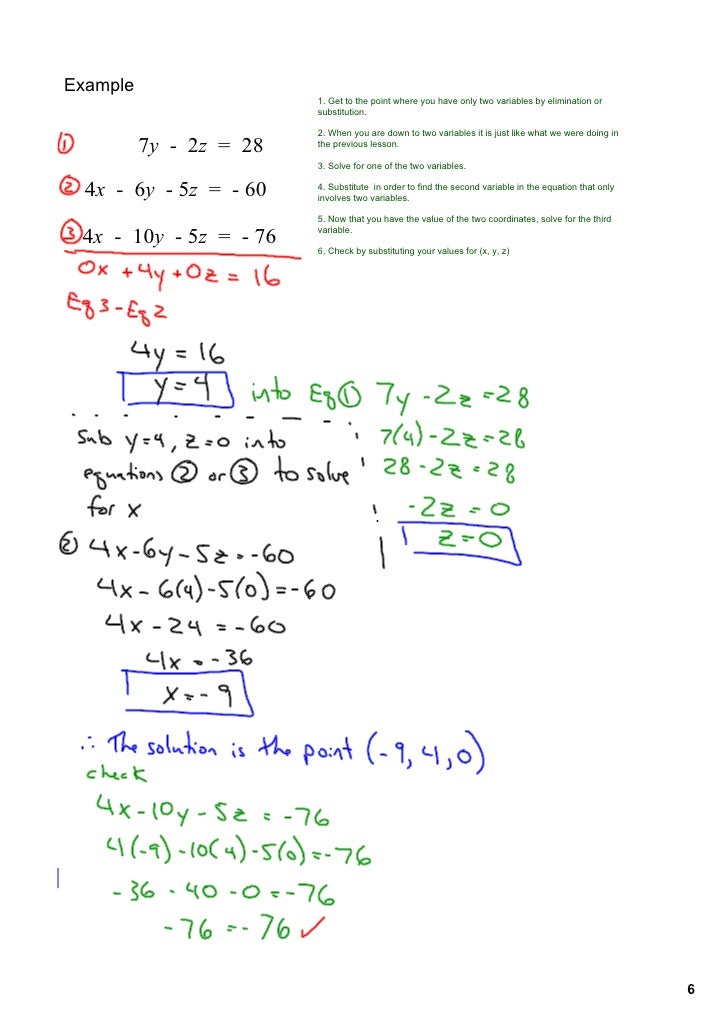 Example
1. Get to the point where you have only two variables by elimination or
substitution.
2. When you are down to two variables it is just like what we were doing in
the previous lesson.
3. Solve for one of the two variables.
4. Substitute in order to find the second variable in the equation that only
involves two variables.
5. Now that you have the value of the two coordinates, solve for the third
variable.
6. Check by substituting your values for (x, y, z)
① 7y - 2z = 28
② 4x - 6y - 5z = - 60
③ 4x - 10y - 5z = - 76
0x + 4y + 0z = 16
Eq3 - Eq2
4y = 16
y = 4
into Eq① 7y - 2z = 28
7(4) - 2z = 28
28 - 2z = 28
-2z = 0
z = 0
Sub y=4, z=0 into
equations ② or ③ to solve
for x
② 4x - 6y - 5z = -60
4x - 6(4) - 5(0) = -60
4x - 24 = -60
4x = -36
x = -9
∴ The solution is the point (-9, 4, 0)
check
4x - 10y - 5z = -76
4(-9) - 10(4) - 5(0) = -76
-36 - 40 - 0 = -76
-76 = -76 ✓
6